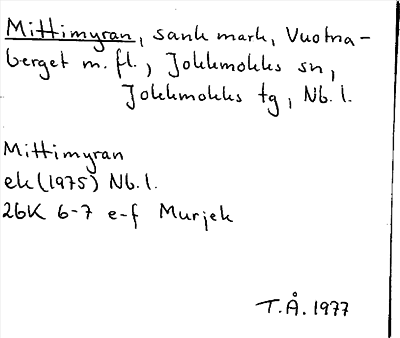 Mittimyran, sank mark, Vuotna-
berget m. fl., Jokkmokks sn,
Jokkmokks tg, Nb. l.
Mittimyran
ek (1975) Nb. l.
26K 6-7 e-f Murjek
T.Å. 1977